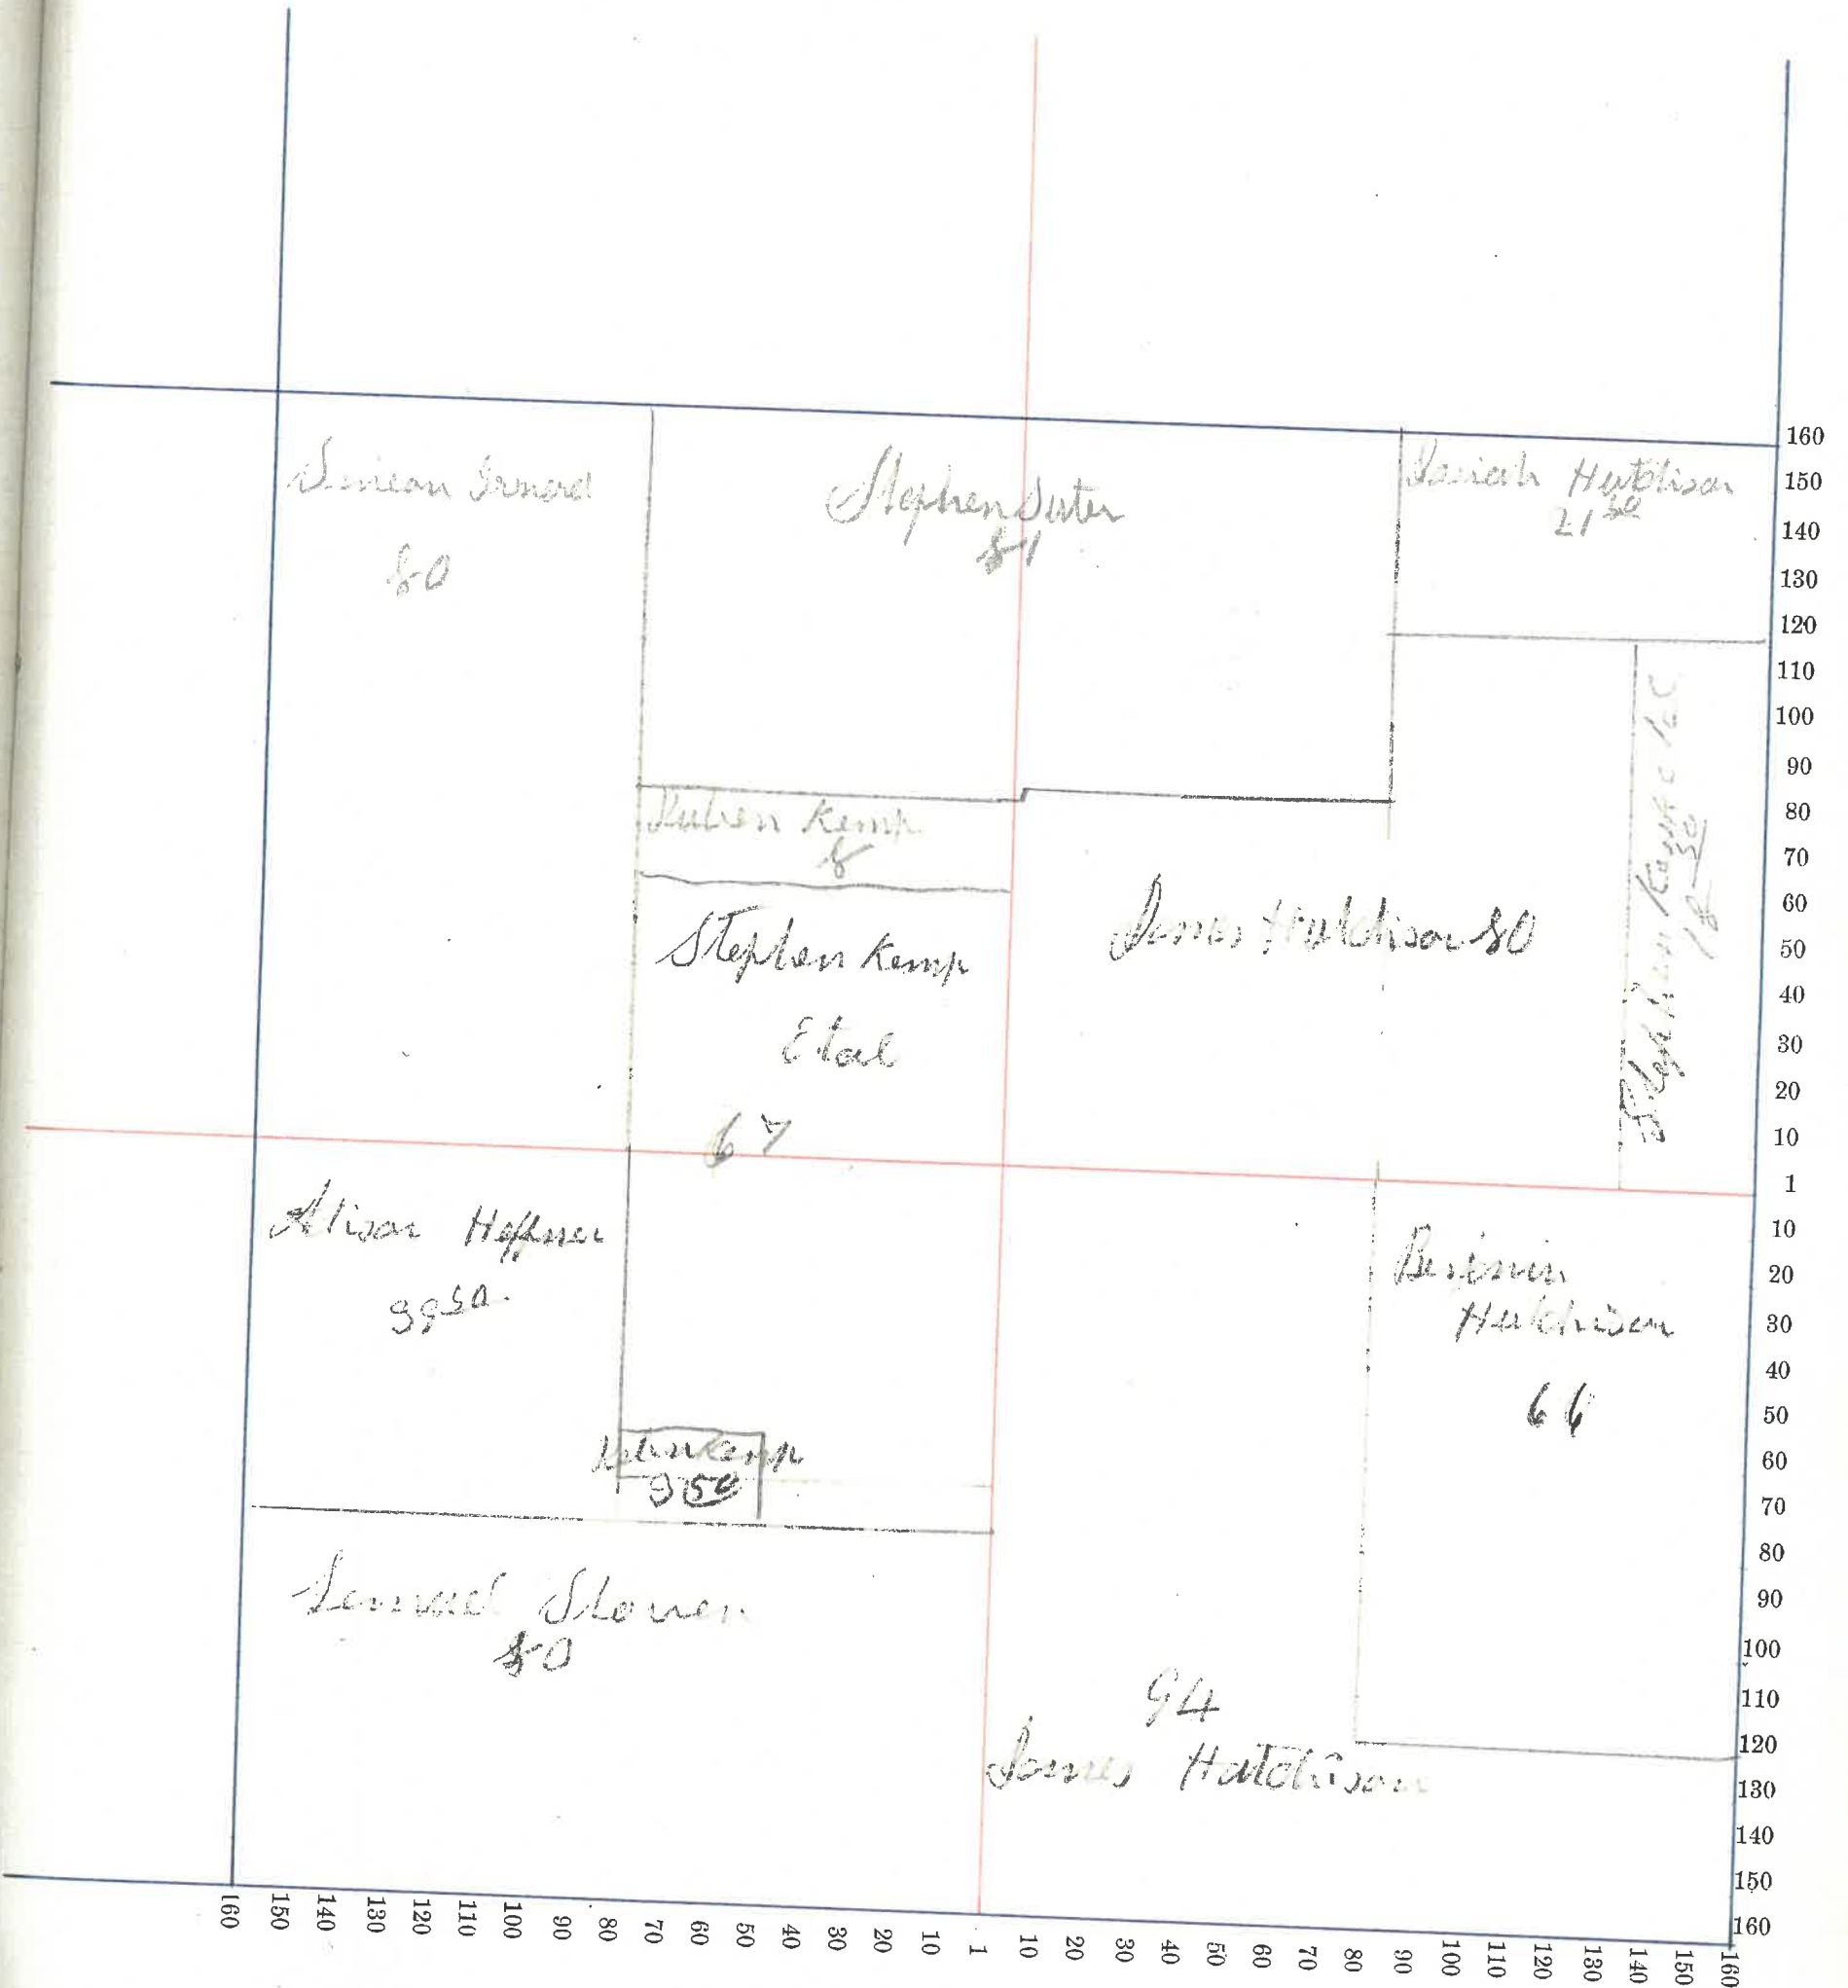 Stephen Suter
81
Hutchison
21 50
80
Kemp
8
Stephen Kemp
Etal
67
James Hutchison 80
Stephen
18 50
Alison Heffner
39 50
Hutchison
66
Kemp
3 50
80
94
James Hutchison
160
150
140
130
120
110
100
90
80
70
60
50
40
30
20
10
1
10
20
30
40
50
60
70
80
90
100
110
120
130
140
150
160
160 150 140 130 120 110 100 90 80 70 60 50 40 30 20 10 1 10 20 30 40 50 60 70 80 90 100 110 120 130 140 150 160